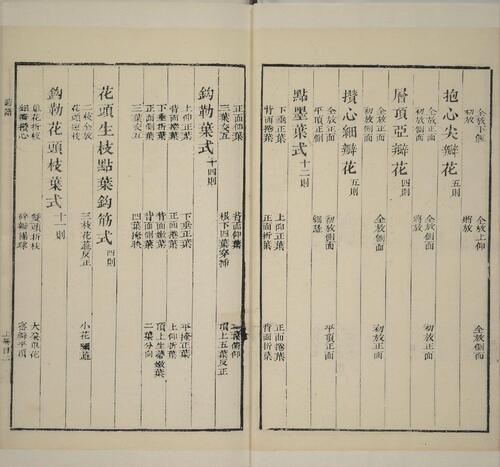 全放下側　全放上仰
初放　將放
抱心尖瓣花五則
全放正面　全放側面　全放正面
初放側面　將放
層頂亞瓣花四則
全放正面　全放側面　初放正面
初放側面
攢心細瓣花五則
全放正面　初放側面　平頂正面
平頂正側　細蕊
點墨葉式十二則
下垂正葉　上仰正葉　正面捲葉
背面捲葉　正面折葉　背面折葉
正面俯葉　背面仰葉　二葉俯仰
三葉交互　根下四葉穿插　頂上五葉反正
鈎勒葉式十四則
上仰正葉　下垂正葉　平捲正葉
背面捲葉　正面捲葉　上仰折葉
下垂折葉　背面嫩葉　頂上生蕊嫩葉
正面側葉　背面側葉　二葉分向
三葉交互　四葉掩映
花頭生枝點葉鈎筋式四則
二枝全放　三枝花蕊反正　小花細蕊
花頭短枝
鈎勒花頭枝葉式十一則
單花折枝　雙頭折枝　大朵單花
細瓣攢心　密瓣平頂